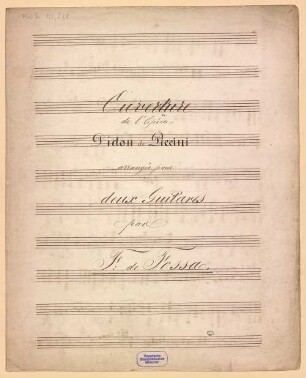 Ouverture
de l'Opéra
Didon de Piccini
arrangée pour
deux Guitares
par
F. de Fossa.